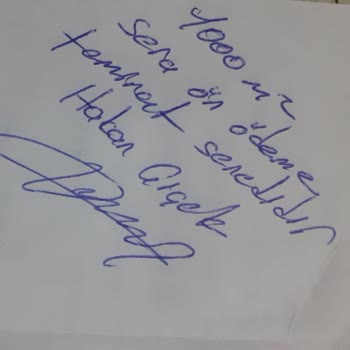 4000 m²
sera ön ödeme
teminat senedidir
Hakan Çiçek